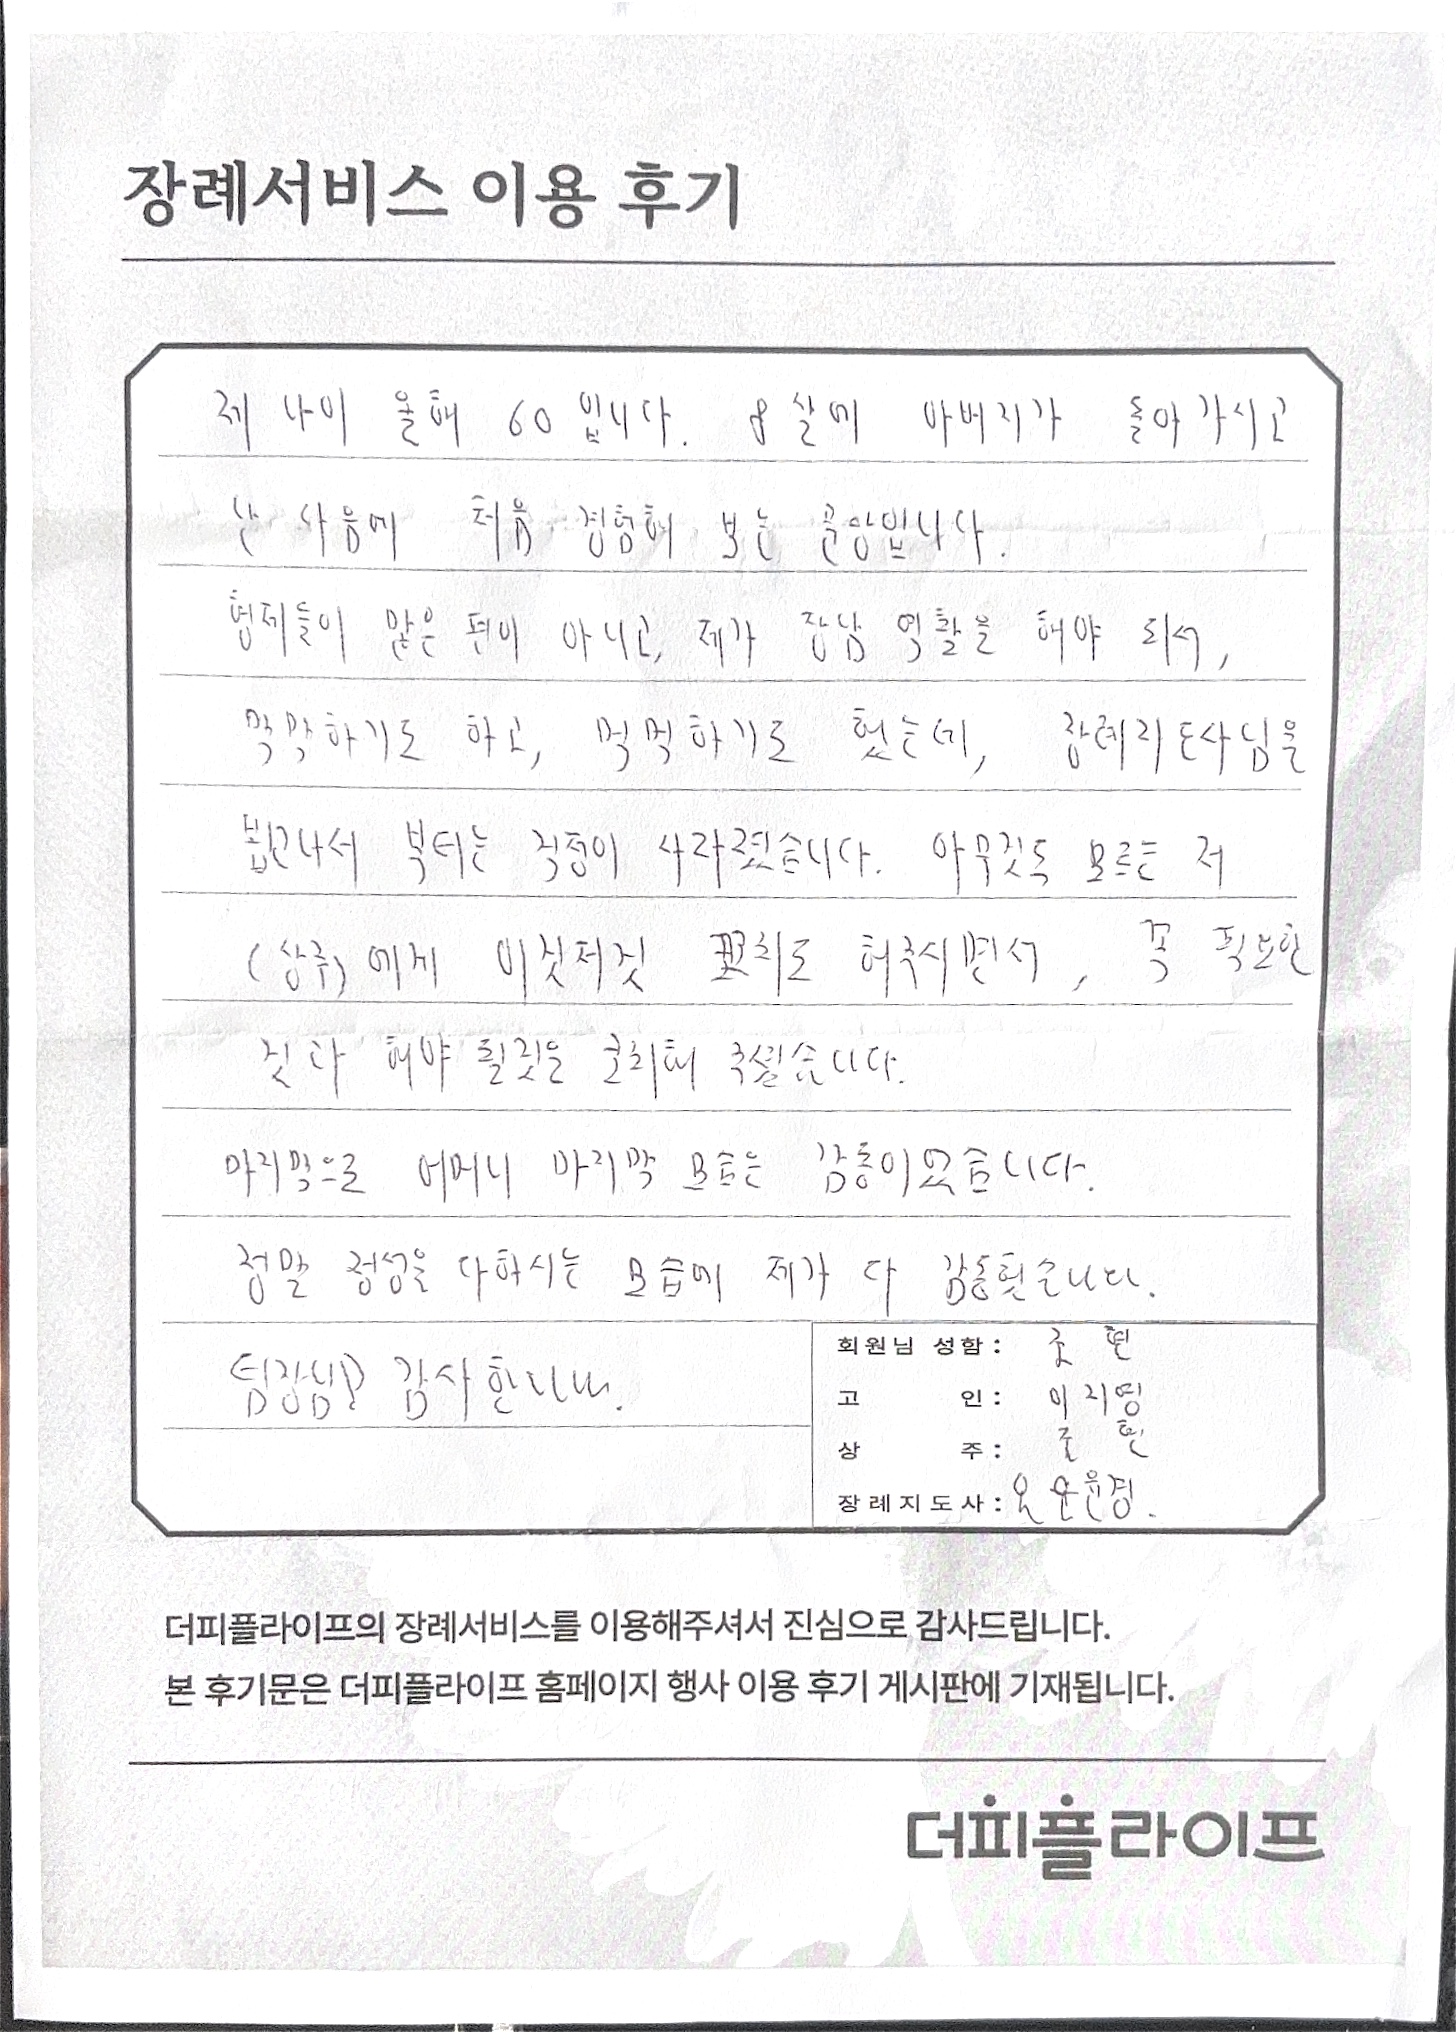 장례서비스 이용 후기
제 나이 올해 60입니다. 8살에 아버지가 돌아가시고
난 다음에 처음 경험해 보는 큰일입니다.
형제들이 많은 편이 아니고, 제가 장남 역활을 해야 되서,
막막하기도 하고, 먹먹하기도 했는데, 장례지도사님을
뵙고나서 부터는 걱정이 사라졌습니다. 아무것도 모르는 저
(상주)에게 이것저것 코치도 해주시면서, 꼭 필요한
것과 해야 될것을 코치해 주셨습니다.
마지막으로 어머니 마지막 모습은 감동이었습니다.
정말 정성을 다하시는 모습에 제가 다 감동됫습니다.
팀장님 감사합니다.
회원님 성함: 조 현
고 인: 이지영
상 주: 조 현
장례지도사: 윤경.
더피플라이프의 장례서비스를 이용해주셔서 진심으로 감사드립니다.
본 후기문은 더피플라이프 홈페이지 행사 이용 후기 게시판에 기재됩니다.
더피플라이프